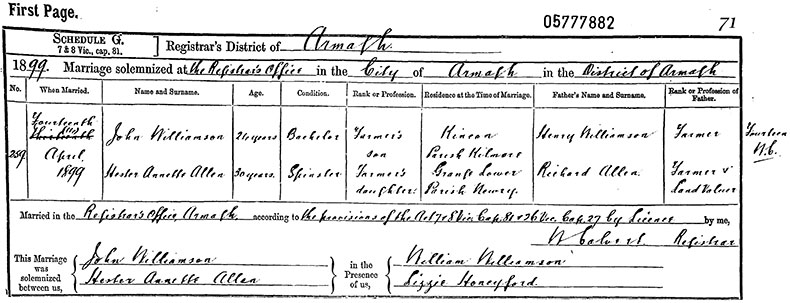 First Page.
05777882
71
SCHEDULE G.
7 & 8 Vic., cap. 81.
Registrar's District of Armagh.
1899. Marriage solemnized at the Registrar's Office in the City of Armagh in the District of Armagh
No. When Married. Name and Surname. Age. Condition. Rank or Profession. Residence at the Time of Marriage. Father's Name and Surname. Rank or Profession of Father.
Fourteenth
Thirteenth John Williamson 24 years Bachelor Farmer's son Kincon Parish Kilmore Henry Williamson Farmer
Fourteen
N.C.
259. April 1899
Hester Annette Allen 30 years Spinster Farmer's daughter Grange Lower Parish Newry Richard Allen Farmer & Land Valuer
Married in the Registrar's Office Armagh according to the provisions of the Act 7 & 8 Vic. Cap. 81 & 26 Vic. Cap. 27 by Licence by me,
W Calvert Registrar
This Marriage was solemnized between us,
John Williamson
Hester Annette Allen
in the Presence of us,
William Williamson
Lizzie Honeyford